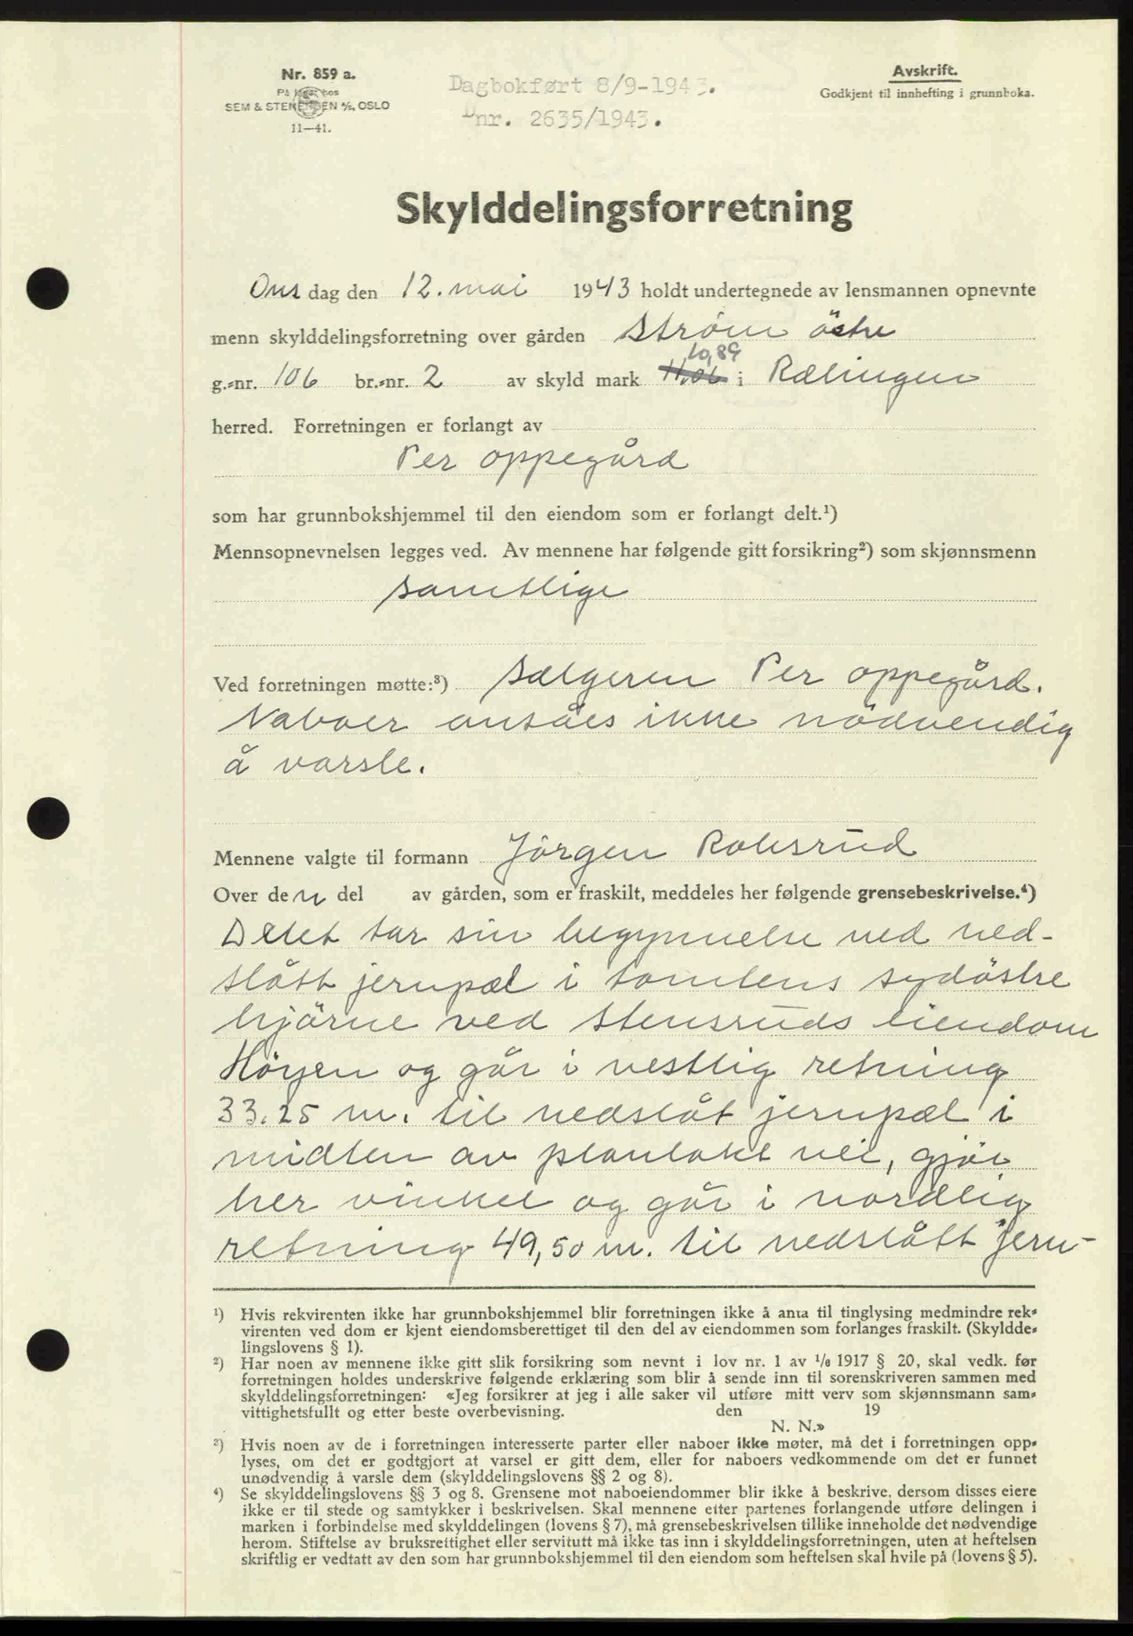 Nr. 859 a.
På lager hos
SEM & STENERSEN A/S, OSLO
11—41.
Dagbokført 8/9-1943.
Dnr. 2635/1943.
Avskrift.
Godkjent til innhefting i grunnboka.
Skylddelingsforretning
Ons dag den 12. mai 1943 holdt undertegnede av lensmannen opnevnte
menn skylddelingsforretning over gården Strøm östre
10,89
g.-nr. 106 br.-nr. 2 av skyld mark 11,06 i Rælingen
herred. Forretningen er forlangt av
Per oppegård
som har grunnbokshjemmel til den eiendom som er forlangt delt.¹)
Mennsopnevnelsen legges ved. Av mennene har følgende gitt forsikring²) som skjønnsmenn
samtlige
Ved forretningen møtte:³) Sælgeren Per oppegård.
Naboer ansåes ikke nödvendig
å varsle.
Mennene valgte til formann Jörgen Rolisrud
Over den del av gården, som er fraskilt, meddeles her følgende grensebeskrivelse.⁴)
Delet tar sin begynnelse ved ned-
slått jernpæl i tomtens sydöstre
hjörne ved Stensruds eiendom
Höyen og går i vestlig retning
33.25 m. til nedslåt jernpæl i
midten av planlakt vei, gjör
her vinkel og går i nordlig
retning 49,50 m. til nedslått jern-
¹) Hvis rekvirenten ikke har grunnbokshjemmel blir forretningen ikke å anta til tinglysing medmindre rek-
virenten ved dom er kjent eiendomsberettiget til den del av eiendommen som forlanges fraskilt. (Skyldde-
lingslovens § 1).
²) Har noen av mennene ikke gitt slik forsikring som nevnt i lov nr. 1 av 1/6 1917 § 20, skal vedk. før
forretningen holdes underskrive følgende erklæring som blir å sende inn til sorenskriveren sammen med
skylddelingsforretningen: «Jeg forsikrer at jeg i alle saker vil utføre mitt verv som skjønnsmann sam-
vittighetsfullt og etter beste overbevisning. den 19
N. N.»
³) Hvis noen av de i forretningen interesserte parter eller naboer ikke møter, må det i forretningen opp-
lyses, om det er godtgjort at varsel er gitt dem, eller for naboers vedkommende om det er funnet
unødvendig å varsle dem (skylddelingslovens §§ 2 og 8).
⁴) Se skylddelingslovens §§ 3 og 8. Grensene mot naboeiendommer blir ikke å beskrive, dersom disses eiere
ikke er til stede og samtykker i beskrivelsen. Skal mennene etter partenes forlangende utføre delingen i
marken i forbindelse med skylddelingen (lovens § 7), må grensebeskrivelsen tillike inneholde det nødvendige
herom. Stiftelse av bruksrettighet eller servitutt må ikke tas inn i skylddelingsforretningen, uten at heftelsen
skriftlig er vedtatt av den som har grunnbokshjemmel til den eiendom som heftelsen skal hvile på (lovens § 5).